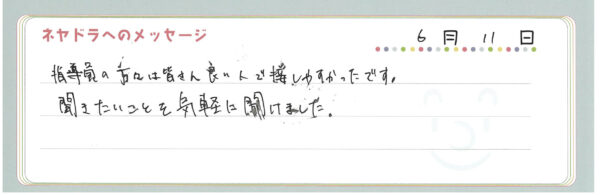 ネヤドラへのメッセージ
6月 11日
指導員の方々は皆さん良い人で接しやすかったです。
聞きたいことを気軽に聞けました。